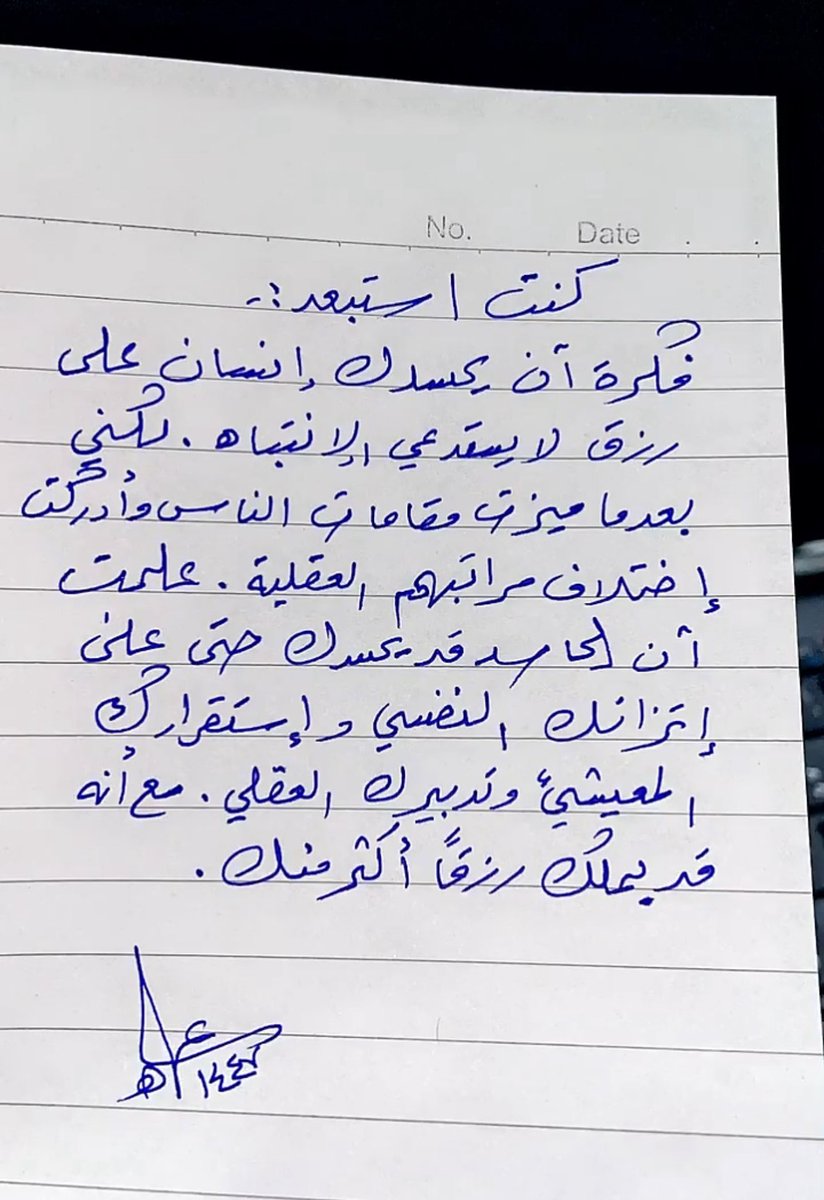 No. Date
كنت استبعد :-
فكرة آن يحسدك إنسان على
رزق لا يستدعي الإنتباه . لكني
بعدما ميزت مقامات الناس وأدركت
إختلاف مراتبهم العقلية . علمت
آن الحاسد قد يحسدك حتى على
إتزانك النفسي وإستقرارك
المعيشيُ وتدبيرك العقلي . مع أنه
قد يملك رزقاً أكثر منك .